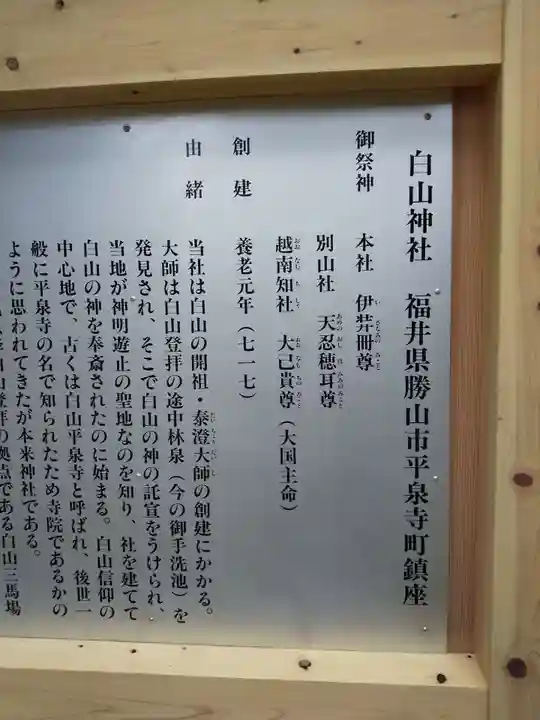 白山神社　福井県勝山市平泉寺町鎮座
御祭神　本社　伊弉冊尊
別山社　天忍穂耳尊
越南知社　大己貴尊（大国主命）
創建　養老元年（七一七）
由緒　当社は白山の開祖・泰澄大師の創建にかかる。
大師は白山登拝の途中林泉（今の御手洗池）を
発見され、そこで白山の神の託宣をうけられ、
当地が神明遊止の聖地なのを知り、社を建てて
白山の神を奉斎されたのに始まる。白山信仰の
中心地で、古くは白山平泉寺と呼ばれ、後世一
般に平泉寺の名で知られたため寺院であるかの
ように思われてきたが本来神社である。
白山登拝の拠点である白山三馬場